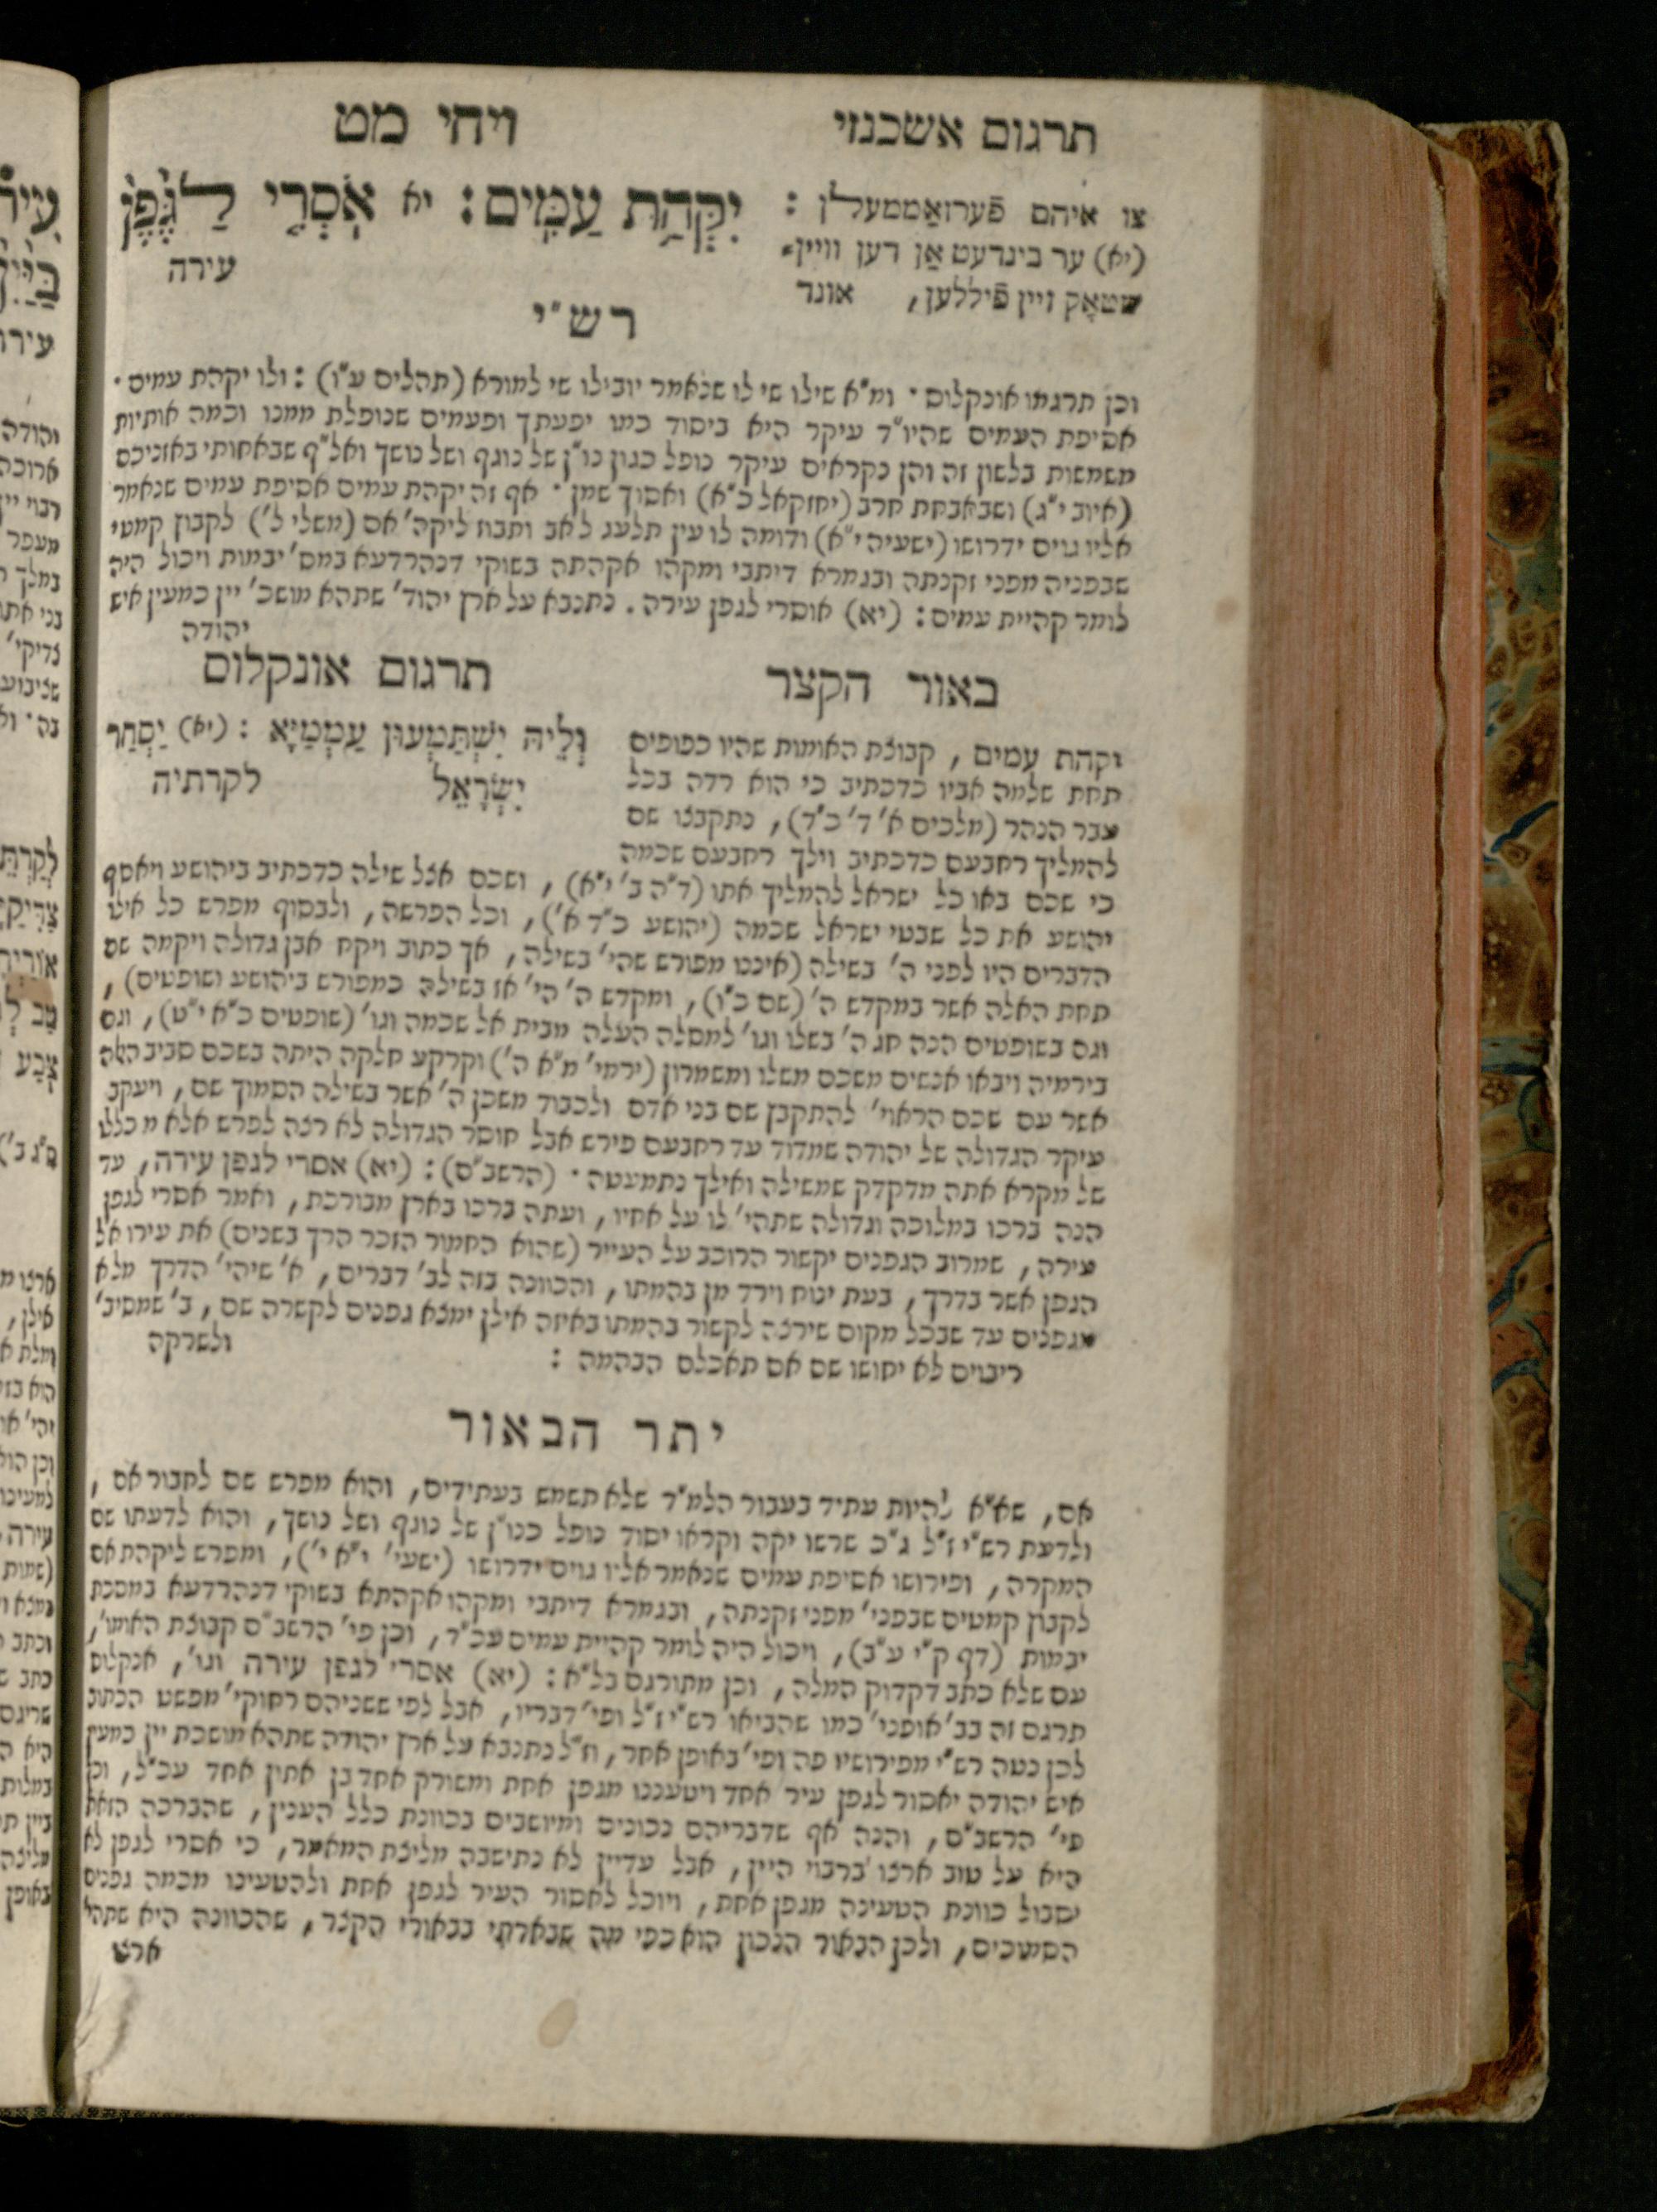 תרגום אשכנזי
ויחי מט
צו איהם פֿערזאַממעלן :
(יא) ער בינדעט אַן דען וויין־
שטאָק זיין פֿיללען, אונד
יִקְּהַת עַמִּים: יא אֹסְרִי לַגֶּפֶן
עירה
רש"י
וכן תרגמו אונקלוס · ומ"א שילו שי לו שנאמר יובילו שי למורא (תהלים ע"ו) : ולו יקהת עמים ·
אסיפת העמים שהיו"ד עיקר היא ביסוד כמו יפעתך ופעמים שנופלת ממנו וכמה אותיות
משמשות בלשון זה והן נקראים עיקר נופל כגון נו"ן של נוגף ושל נושך ואל"ף שבאחותי באזניכם
(איוב י"ג) ושבאבחת חרב (יחזקאל כ"א) ואסוך שמן · אף זה יקהת עמים אסיפת עמים שנאמר
אליו גוים ידרושו (ישעיה י"א) ודומה לו עין תלעג לאב ותבוז ליקה' אם (משלי ל') לקבוץ קמטי
שבפניה מפני זקנתה ובגמרא דיתבי ומקהו אקהתה בשוקי דנהרדעא במס' יבמות ויכול היה
לומר קהיית עמים : (יא) אוסרי לגפן עירה . נתנבא על ארץ יהוד' שתהא מושכ' יין כמעין איש
יהודה
באור הקצר
יקהת עמים , קבוצת האומות שהיו כפופים
תחת שלמה אביו כדכתיב כי הוא רדה בכל
עבר הנהר (מלכים א' ד' כ"ד) , נתקבצו שם
להמליך רחבעם כדכתיב וילך רחבעם שכמה
תרגום אונקלוס
וְלֵיהּ יִשְׁתַּמְעוּן עַמְמַיָּא : (יא) יַסְחַר
יִשְׂרָאֵל לקרתיה
כי שכם באו כל ישראל להמליך אתו (ד"ה ב' י"א) , ושכם אצל שילה כדכתיב ביהושע ויאסף
יהושע את כל שבטי ישראל שכמה (יהושע כ"ד א') , וכל הפרשה , ולבסוף מפרש כל אישׁ
הדברים היו לפני ה' בשילה (איננו מפורש שהי' בשילה , אך כתוב ויקח אבן גדולה ויקמה שם
תחת האלה אשר במקדש ה' (שם כ"ו) , ומקדש ה' הי' אז בשילה כמפורש ביהושע ושופטים) ,
וגם בשופטים הנה חג ה' בשלו וגו' למסלה העלה מבית אל שכמה וגו' (שופטים כ"א י"ט) , וגם
בירמיה ויבאו אנשים משכם משלו ומשמרון (ירמי' מ"א ה') וקרקע חלקה היתה בשכם סביב האלה
אשר עם שכם הראוי' להתקבץ שם בני אדם ולכבוד משכן ה' אשר בשילה הסמוך שם , ויעקב
עיקר הגדולה של יהודה שמדוד עד רחבעם פירש אבל חוסר הגדולה לא רצה לפרש אלא מכלל
של מקרא אתה מדקדק שמשילה ואילך נתמעטה · (הרשב"ם) : (יא) אסרי לגפן עירה , עד
הנה ברכו במלוכה וגדולה שתהי' לו על אחיו , ועתה ברכו בארץ מבורכת , ואמר אסרי לגפן
עירה , שמרוב הגפנים יקשור הרוכב על העייר (שהוא החמור הזכר הרך בשנים) את עירו אל
הגפן אשר בדרך , בעת ינוח וירד מן בהמתו , והכוונה בזה לב' דברים , א' שיהי' הדרך מלא
מגפנים עד שבכל מקום שירצה לקשור בהמתו באיזה אילן ימצא גפנים לקשרה שם , ב' שמסיב'
ריבוים לא יחושו שם אם תאכלם הבהמה :
ולשרקה
יתר הבאור
אם , שא"א להיות עתיד בעבור הלמ"ד שלא תשמש בעתידים , והוא מפרש שם לחבור אם ,
ולדעת רש"י ז"ל ג"כ שרשו יקה וקראו יסוד נופל כנו"ן של נוגף ושל נושך , והוא לדעתו שם
המקרה , ופירושו אסיפת עמים שנאמר אליו גוים ידרושו (ישעי' י"א י') , ומפרש ליקהת אם
לקבוץ קמטים שבפני' מפני זקנתה , ובגמרא דיתבי ומקהו אקהתא בשוקי דנהרדעא במסכת
יבמות (דף ק"י ע"ב) , ויכול היה לומר קהיית עמים עכ"ד , וכן פי' הרשב"ם קבוצת האומו' ,
עם שלא כתב דקדוק המלה , וכן מתורגם בל"א : (יא) אסרי לגפן עירה וגו' , אנקלוס
תרגם זה בב' אופני' כמו שהביאו רש"י ז"ל ופי' דבריו , אבל לפי ששניהם רחוקי' מפשט הכתוב
לכן נטה רש"י מפירושיו פה ופי' באופן אחר , וז"ל נתנבא על ארץ יהודה שתהא מושכת יין כמעין
איש יהודה יאסור לגפן עיר אחד ויטעננו מגפן אחת ומשורק אחד בן אתון אחד עכ"ל , וכן
פי' הרשב"ם , והנה אף שדבריהם נכונים ומיושבים בכוונת כלל הענין , שהברכה הזאת
היא על טוב ארצו ברבוי היין , אבל עדיין לא נתישבה מליצת המאמר , כי אסרי לגפן לא
יסבול כוונת הטעינה מגפן אחת , ויוכל לאסור העיר לגפן אחת ולהטעינו מכמה גפנים
הסמוכים , ולכן הבאור הנכון הוא כפי מה שבארתי בבאורי הקצר , שהכוונה היא שתהי'
ארצו